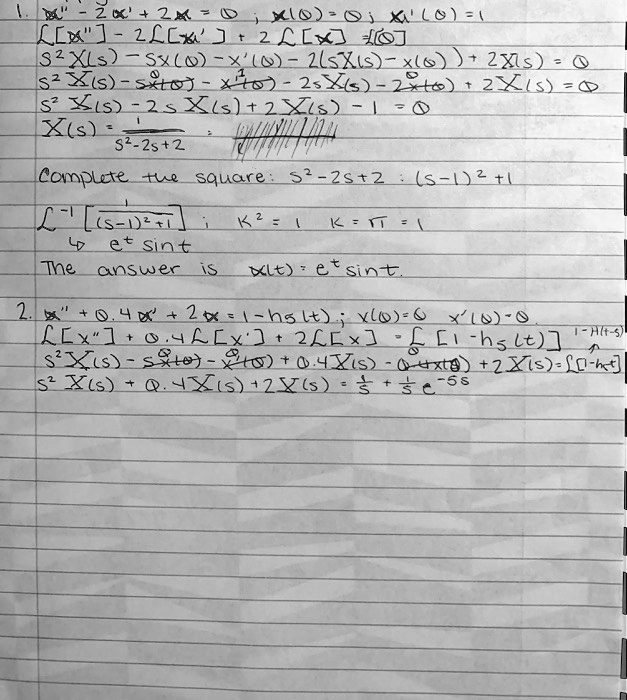 1. x'' - 2x' + 2x = 0 ; x(0) = 0 ; x'(0) = 1
L[x''] - 2L[x'] + 2L[x] = L[0]
s²X(s) - sx(0) - x'(0) - 2(sX(s) - x(0)) + 2X(s) = 0
s²X(s) - sx(0) - x'(0) - 2sX(s) - 2x(0) + 2X(s) = 0
s²X(s) - 2sX(s) + 2X(s) - 1 = 0
X(s) = 1/(s²-2s+2) :
Complete the square: s²-2s+2 : (s-1)²+1
L⁻¹[1/((s-1)²+1)] ; K² = 1 K = √1 = 1
↳ eᵗ sin t
The answer is x(t) = eᵗ sin t.
2. x'' + 0.4x' + 2x = 1 - h₅(t) ; x(0) = 0 x'(0) = 0
L[x''] + 0.4L[x'] + 2L[x] = L[1 - h₅(t)] 1-H(t-5)
s²X(s) - sx(0) - x'(0) + 0.4X(s) - 0.4x(0) + 2X(s) = L[1-h₅t]
s²X(s) + 0.4X(s) + 2X(s) = 1/s + 1/s e⁻⁵ˢ